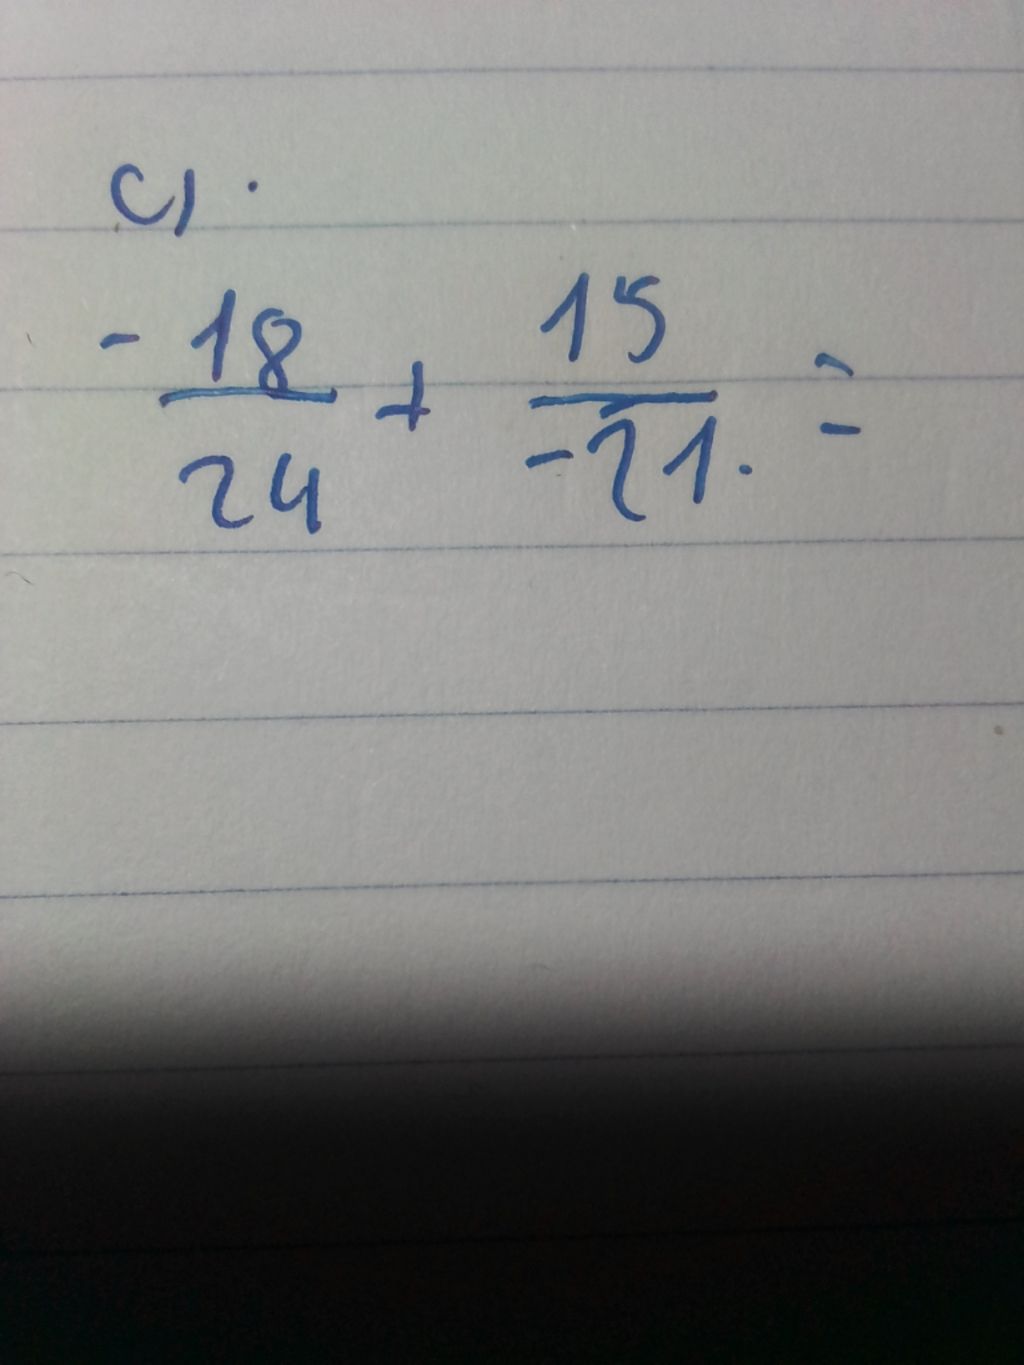 c) .
-18/24 + 15/-21. =